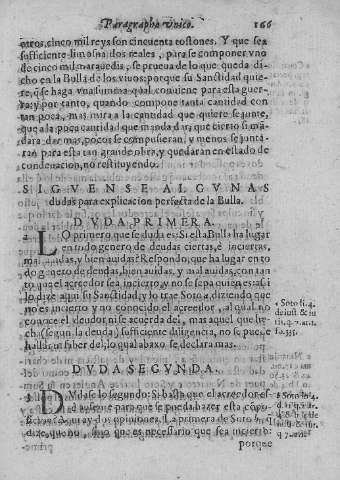 Paragrapho Vnico. 166
otros, cinco mil reys son cincuenta tostones. Y que sea
sufficiente limosna dos reales, para se componer vno
de cinco mil marauedis, se prueua de lo que queda di-
cho en la Bulla de los viuos: porque su Sanctidad quie-
re, q̃ se haga vna summa qual conuiene para esta guer-
ra: y por tanto, quando compone tanta cantidad con
tan poca, mas mira a la cantidad que quiere se junte,
que a la poca cantidad que manda dar: que cierto si mã-
dara dar mas, pocos se compusieran, y menos se junta-
ran para esta tan grande obra, y quedaran en estado de
condenacion, no restituyendo.
SIGVENSE ALGVNAS
dudas para explicacion perfecta de la Bulla.
DVDA PRIMERA.
LO primero que se duda es: Si esta Bulla ha lugar
en todo genero de deudas ciertas, e inciertas,
mal auidas, y bien auidas? Respondo, que ha lugar en to
do genero de deudas, bien auidas, y mal auidas, con tan
to que el acreedor sea incierto, y no se sepa quien es: assi
lo dize aqui su Sanctidad, y lo trae Soto a, diziendo que
no es incierto y no conocido el acreedor, al qual no
conoce el deudor ni se acuerda del, mas aquel que he-
cha (segun la deuda) sufficiente diligencia, no se puede
hallar ni saber del, lo qual abaxo se declara mas.
a Soto li. 4.
de iust. & iu
ris, q. 7. art.
1. a. 335.
DVDA SEGVNDA.
DVdase lo segundo: Si basta que el acreedor es-
te ausente para que se pueda hazer esta cõpo-
sicion? Aqui ay dos opiniones. La primera de Soto
dize, que no, sino que es necessario que sea incierto:
porque